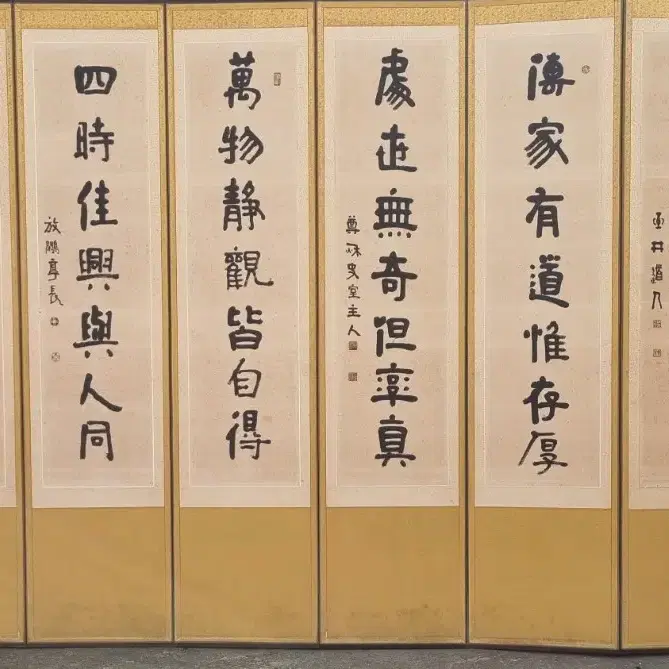 井道人
傳家有道惟存厚
處世無奇但率真
尊秋史室主人
萬物靜觀皆自得
四時佳興與人同
放亭長